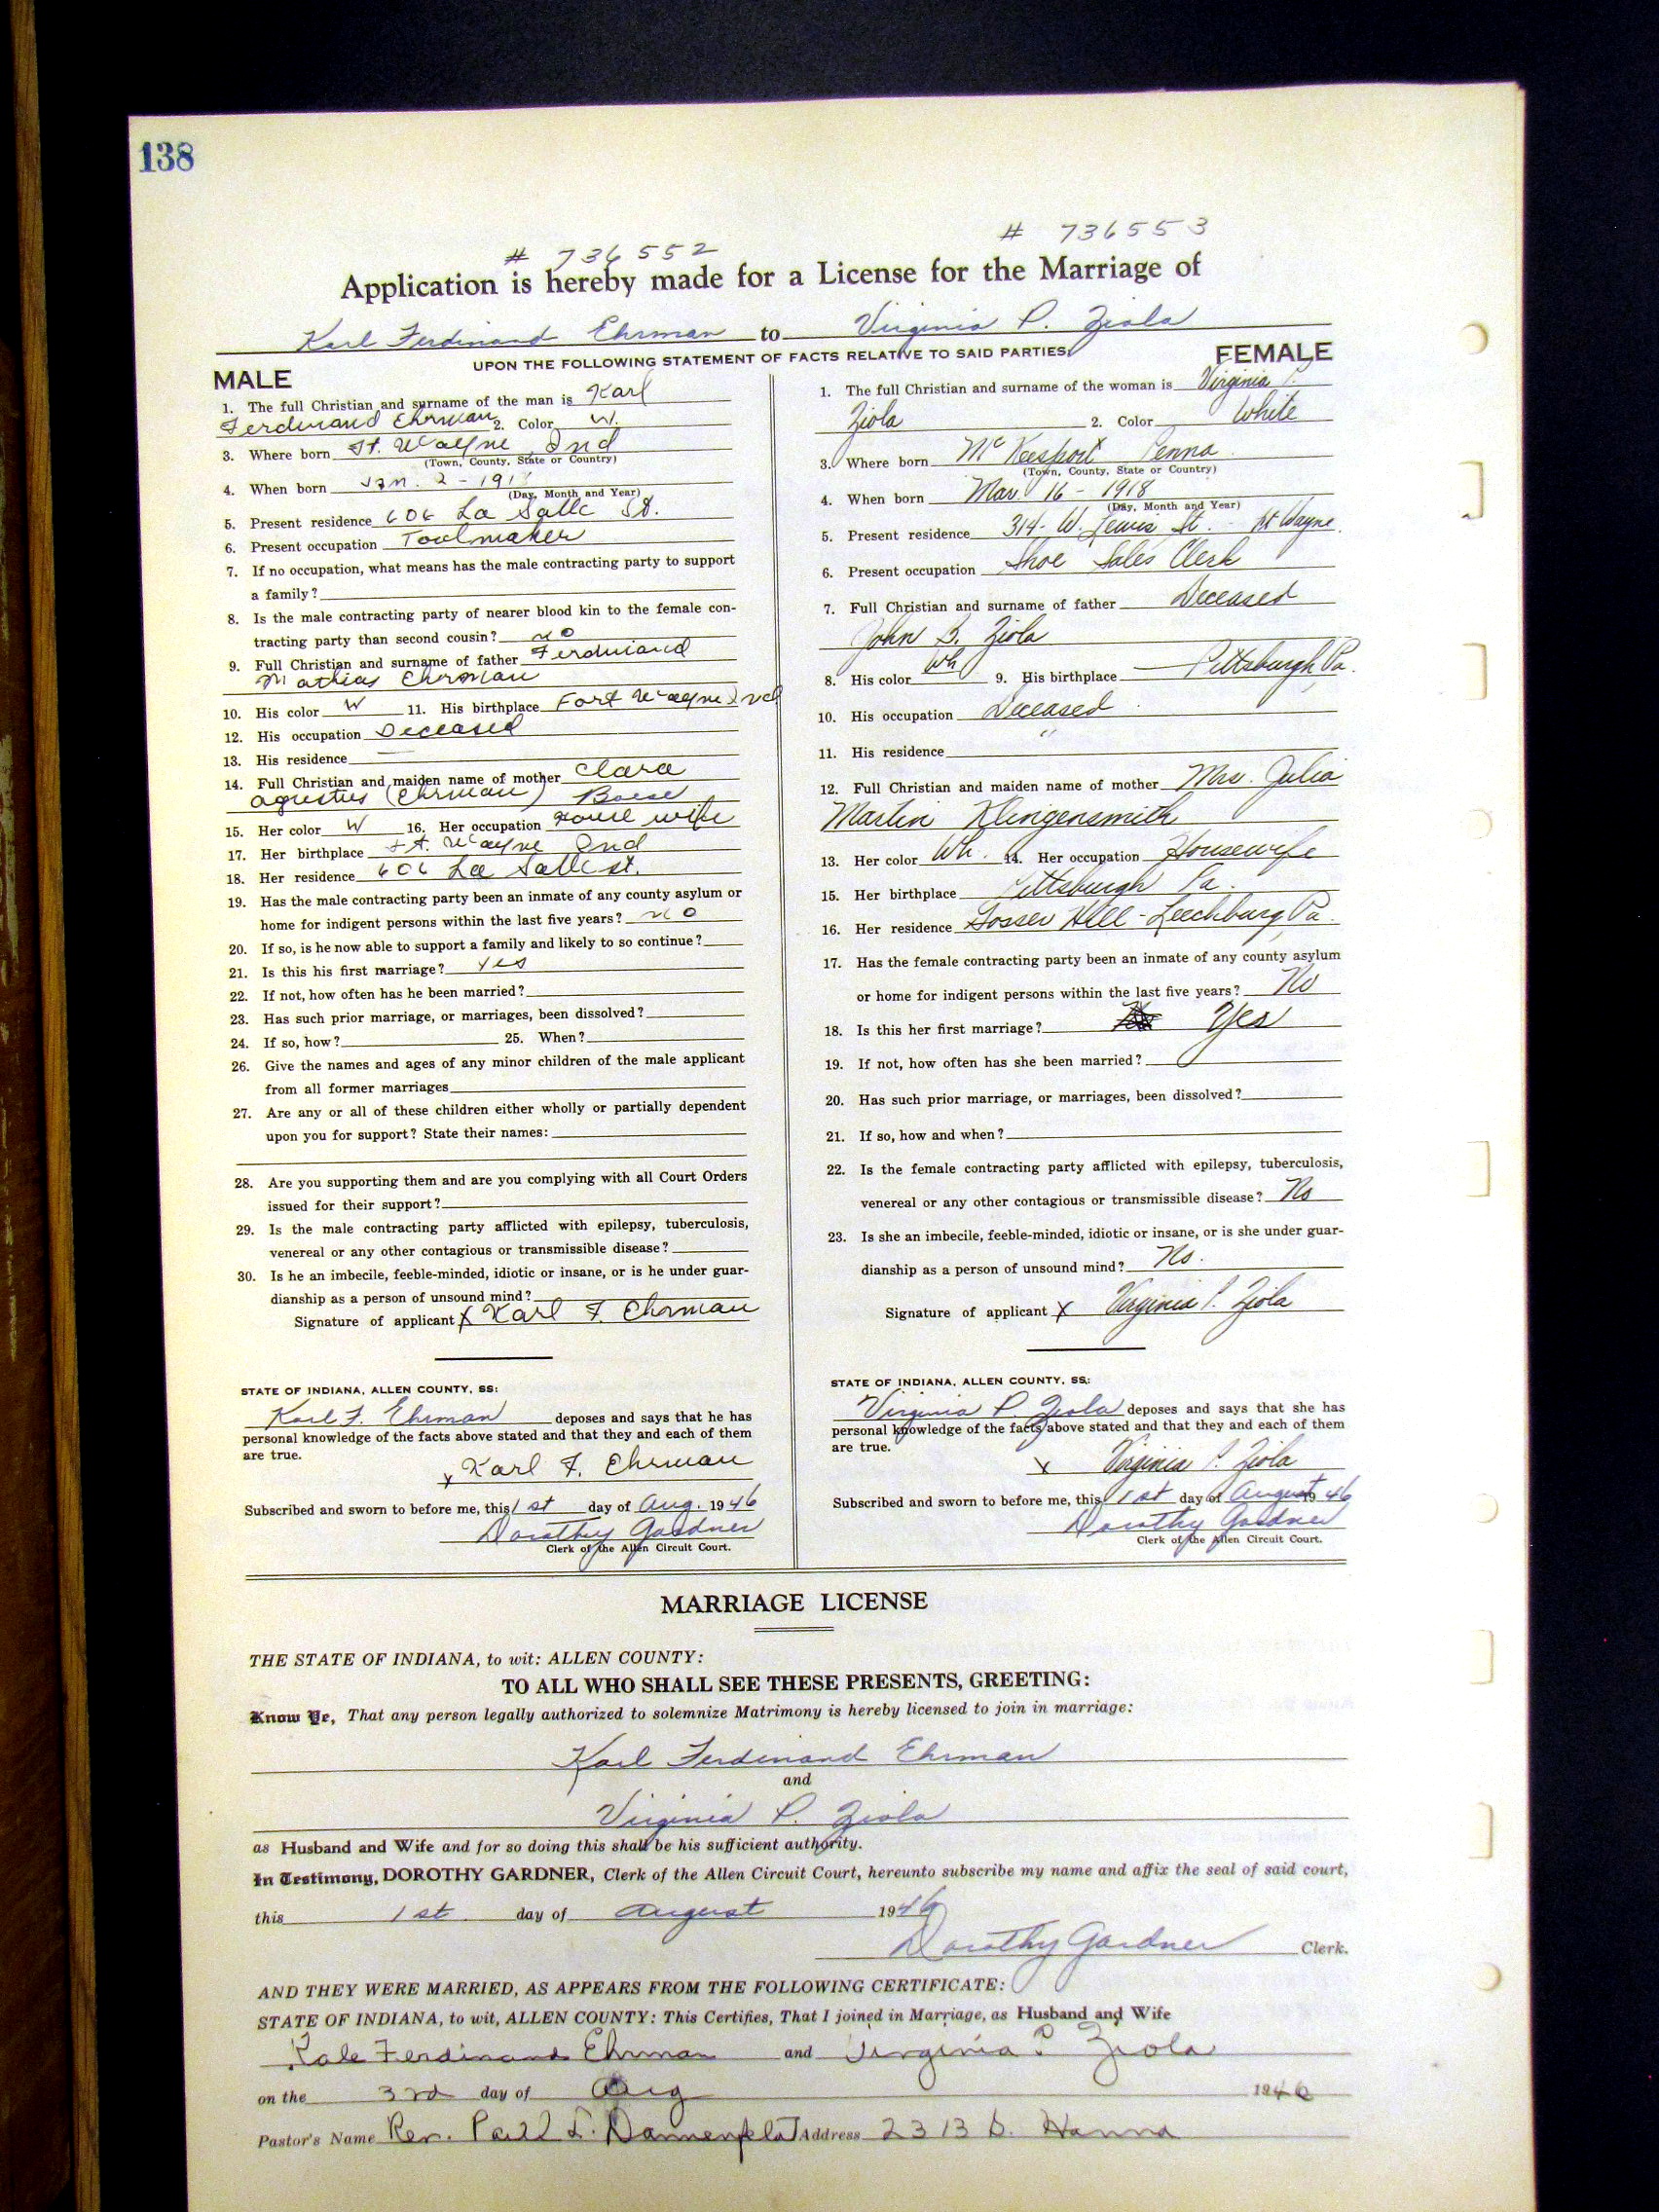 138
# 736552
# 736553
Application is hereby made for a License for the Marriage of
Karl Ferdinand Ehrman to Virginia P. Ziola
UPON THE FOLLOWING STATEMENT OF FACTS RELATIVE TO SAID PARTIES:
MALE
1. The full Christian and surname of the man is Karl
Ferdinand Ehrman 2. Color W.
3. Where born Ft. Wayne Ind
(Town, County, State or Country)
4. When born Jan. 2 - 191
(Day, Month and Year)
5. Present residence 606 La Salle St.
6. Present occupation Toolmaker
7. If no occupation, what means has the male contracting party to support
a family?
8. Is the male contracting party of nearer blood kin to the female con-
tracting party than second cousin? no
9. Full Christian and surname of father Ferdinand
Mathias Ehrman
10. His color W 11. His birthplace Fort Wayne Ind
12. His occupation Deceased
13. His residence
14. Full Christian and maiden name of mother Clara
Agustus (Ehrman) Boese
15. Her color W 16. Her occupation House wife
17. Her birthplace Ft. Wayne Ind
18. Her residence 606 La Salle st.
19. Has the male contracting party been an inmate of any county asylum or
home for indigent persons within the last five years? no
20. If so, is he now able to support a family and likely to so continue?
21. Is this his first marriage? Yes
22. If not, how often has he been married?
23. Has such prior marriage, or marriages, been dissolved?
24. If so, how? 25. When?
26. Give the names and ages of any minor children of the male applicant
from all former marriages
27. Are any or all of these children either wholly or partially dependent
upon you for support? State their names:
28. Are you supporting them and are you complying with all Court Orders
issued for their support?
29. Is the male contracting party afflicted with epilepsy, tuberculosis,
venereal or any other contagious or transmissible disease?
30. Is he an imbecile, feeble-minded, idiotic or insane, or is he under guar-
dianship as a person of unsound mind?
Signature of applicant X Karl F. Ehrman
STATE OF INDIANA, ALLEN COUNTY, SS:
Karl F. Ehrman deposes and says that he has
personal knowledge of the facts above stated and that they and each of them
are true.
x Karl F. Ehrman
Subscribed and sworn to before me, this 1st day of Aug. 1946
Dorothy Gardner
Clerk of the Allen Circuit Court.
FEMALE
1. The full Christian and surname of the woman is Virginia P.
Ziola 2. Color White
3. Where born McKeesport Penna
(Town, County, State or Country)
4. When born Mar. 16 - 1918
(Day, Month and Year)
5. Present residence 314 - W. Lewis St. - Ft Wayne.
6. Present occupation Shoe Sales Clerk
7. Full Christian and surname of father Deceased
John S. Ziola
8. His color Wh 9. His birthplace Pittsburgh Pa.
10. His occupation Deceased
11. His residence "
12. Full Christian and maiden name of mother Mrs. Julia
Martin Klingensmith
13. Her color Wh. 14. Her occupation Housewife
15. Her birthplace Pittsburgh Pa.
16. Her residence Gosser Hill - Leechburg Pa.
17. Has the female contracting party been an inmate of any county asylum
or home for indigent persons within the last five years? No
18. Is this her first marriage? Yes
19. If not, how often has she been married?
20. Has such prior marriage, or marriages, been dissolved?
21. If so, how and when?
22. Is the female contracting party afflicted with epilepsy, tuberculosis,
venereal or any other contagious or transmissible disease? No
23. Is she an imbecile, feeble-minded, idiotic or insane, or is she under guar-
dianship as a person of unsound mind? No.
Signature of applicant X Virginia P. Ziola
STATE OF INDIANA, ALLEN COUNTY, SS:
Virginia P. Ziola deposes and says that she has
personal knowledge of the facts above stated and that they and each of them
are true.
x Virginia P. Ziola
Subscribed and sworn to before me, this 1st day of August 1946
Dorothy Gardner
Clerk of the Allen Circuit Court.
MARRIAGE LICENSE
THE STATE OF INDIANA, to wit: ALLEN COUNTY:
TO ALL WHO SHALL SEE THESE PRESENTS, GREETING:
Know Ye, That any person legally authorized to solemnize Matrimony is hereby licensed to join in marriage:
Karl Ferdinand Ehrman
and
Virginia P. Ziola
as Husband and Wife and for so doing this shall be his sufficient authority.
In Testimony, DOROTHY GARDNER, Clerk of the Allen Circuit Court, hereunto subscribe my name and affix the seal of said court,
this 1st day of August 1946
Dorothy Gardner Clerk.
AND THEY WERE MARRIED, AS APPEARS FROM THE FOLLOWING CERTIFICATE:
STATE OF INDIANA, to wit, ALLEN COUNTY: This Certifies, That I joined in Marriage, as Husband and Wife
Kale Ferdinand Ehrman and Virginia P Ziola
on the 3rd day of Aug 1946
Pastor's Name Rev. Paul L. Dannenfeldt Address 2313 S. Hanna